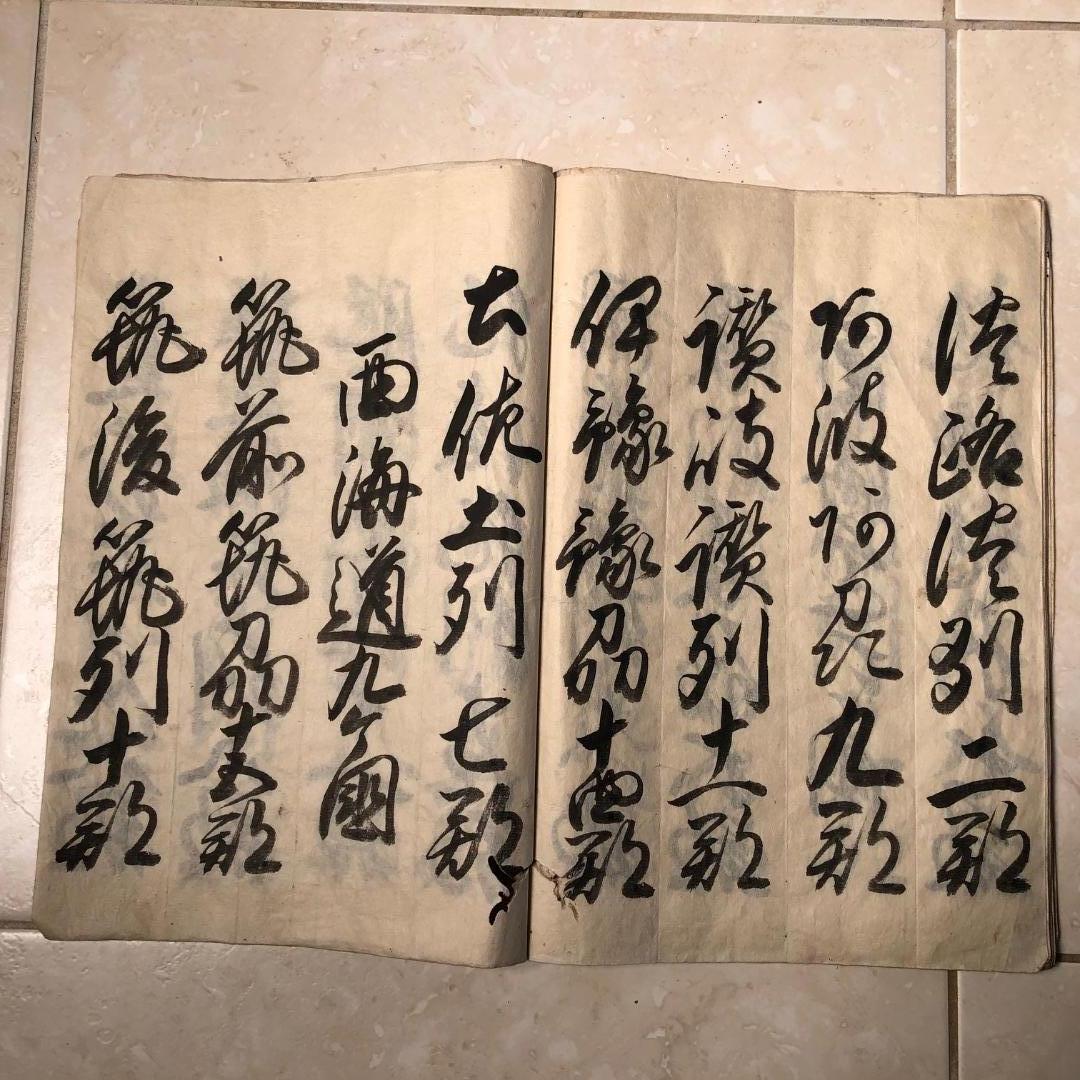 淡路淡州二郡
阿波阿州九郡
讃岐讃州十一郡
伊豫豫州十四郡
土佐土州七郡
西海道九ケ國
筑前筑州十五郡
筑後筑州十郡